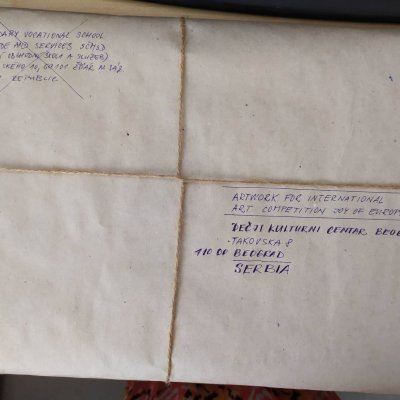 DARY VOCATIONAL SCHOOL
DE AND SERVICES SCHOOL
OBCHODNÍ ŠKOLA A SLUŽEB)
SKÉHO 10, 591 01 ŽĎÁR N. SÁZ.
REPUBLIC
ARTWORK FOR INTERNATIONAL
ART COMPETITION JOY OF EUROP
DEČJI KULTURNI CENTAR BEOG
TAKOVSKA 8
110 00 BEOGRAD
SERBIA